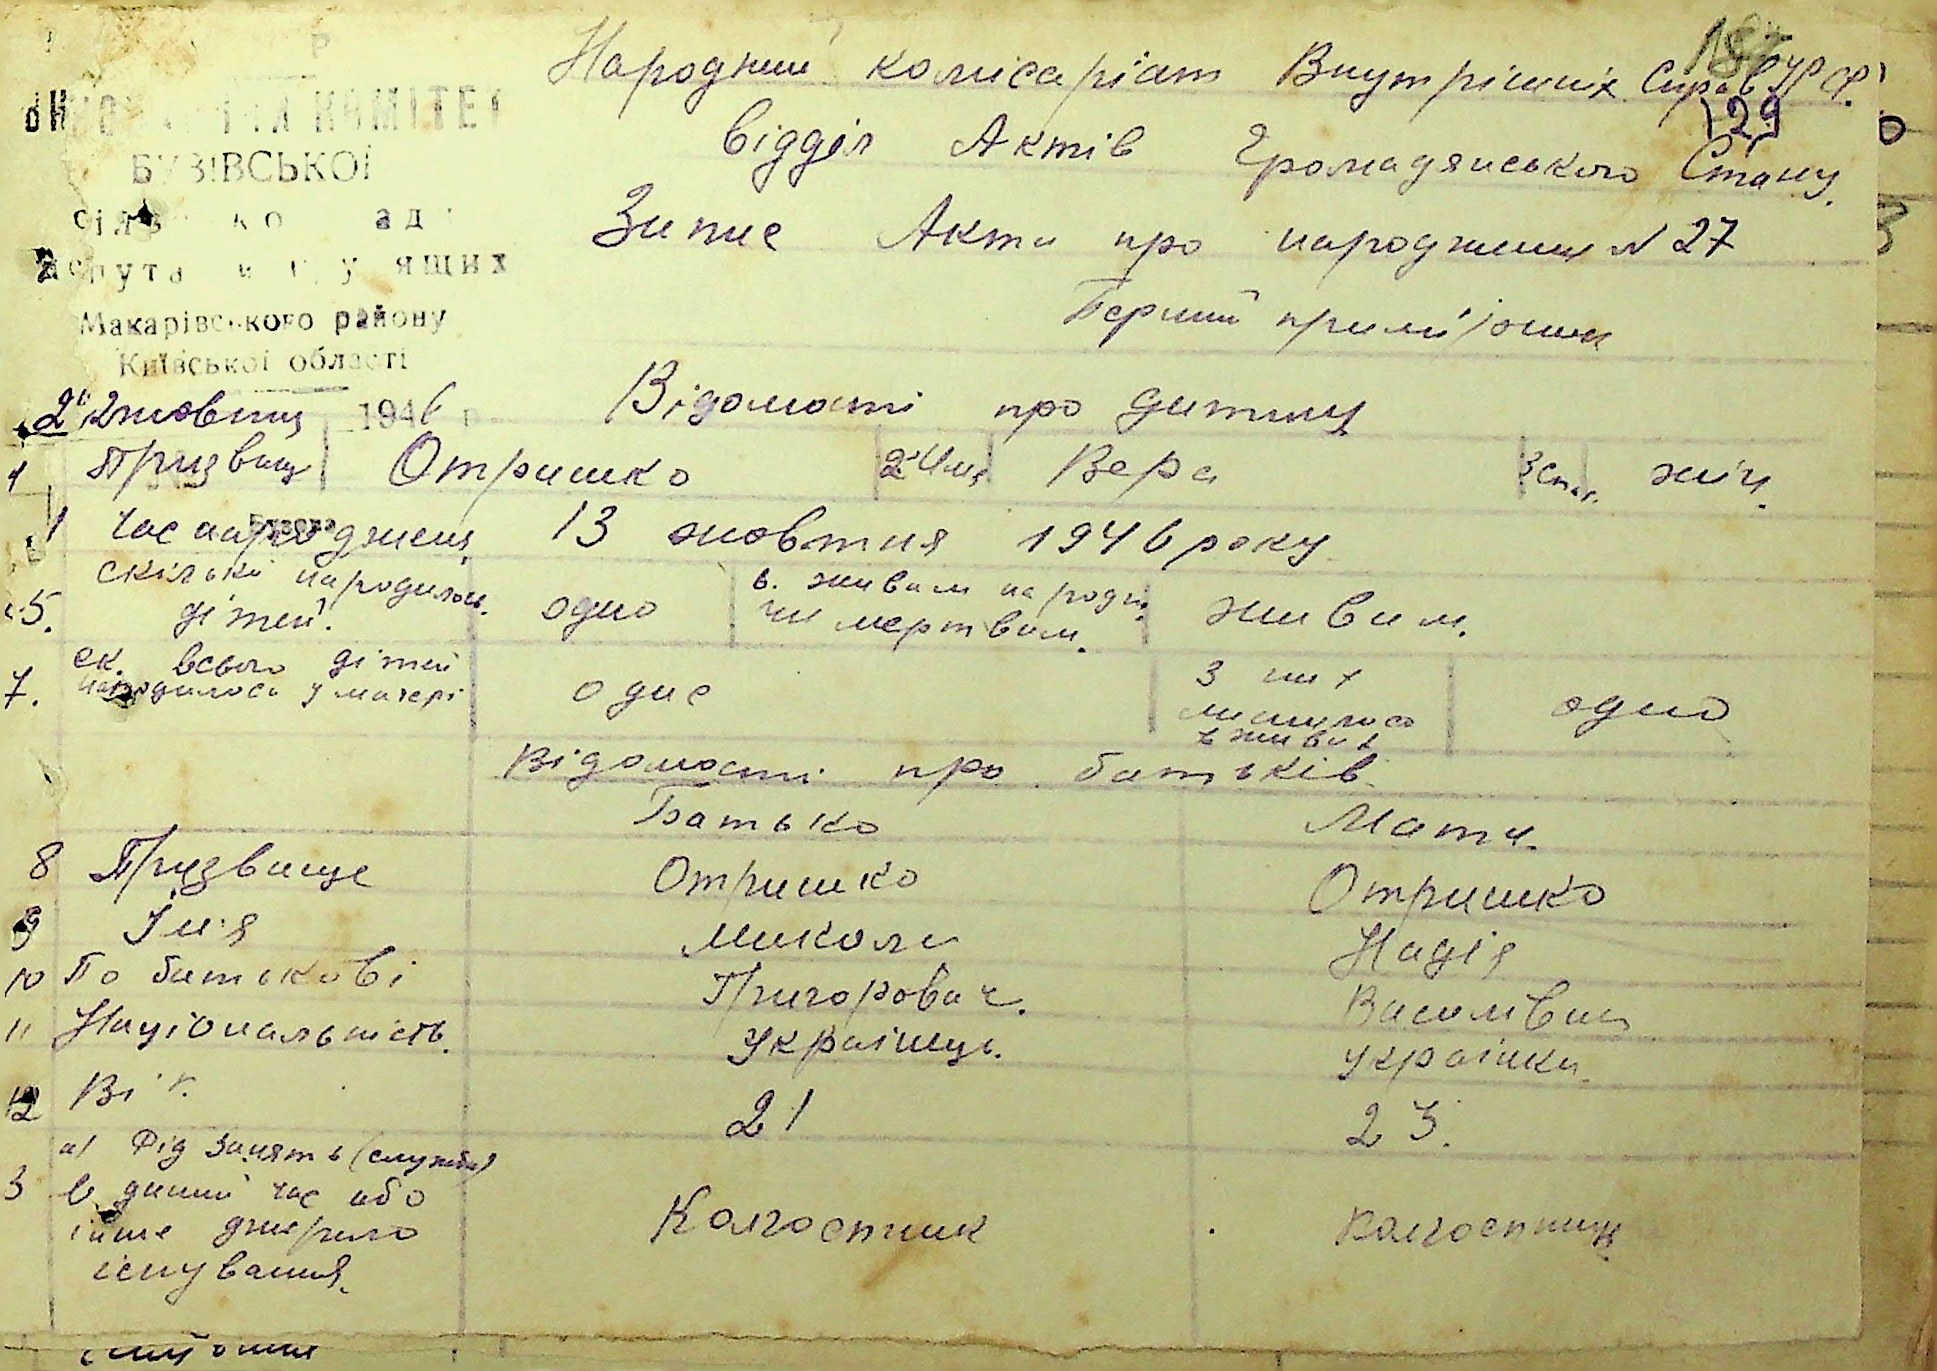 187
Народний комісаріат Внутрішніх Справ
129
Відділ Актів Громадянського Стану.
КОМІТЕТ
БУЗІВСЬКОЇ
Запис Акта про народження N 27
трудящих
Макарівського району
Перший примірник
Київської області
1946 р
Відомості про дитину
1 Призвище Отришко 2. Имя Вера 3 Стать жіч.
Бузова
Час народження 13 жовтня 1946 року
5. скількі народилось дітей. одно 6. живим народи. чи мертвим. живим.
7. ск. всього дітей народилось у матері одне з них лишилось в живих одно
Відомості про батьків
Батько Мати.
8 Призвище Отришко Отришко
9 Імя Микола Надія
10 По батькові Григорович. Василівна
11 Національність. Українець. Українка.
12 Вік. 21 23.
а) Рід занять (служби)
3 в даний час або
інше джерело Колгоспник Колгоспниця
існування.